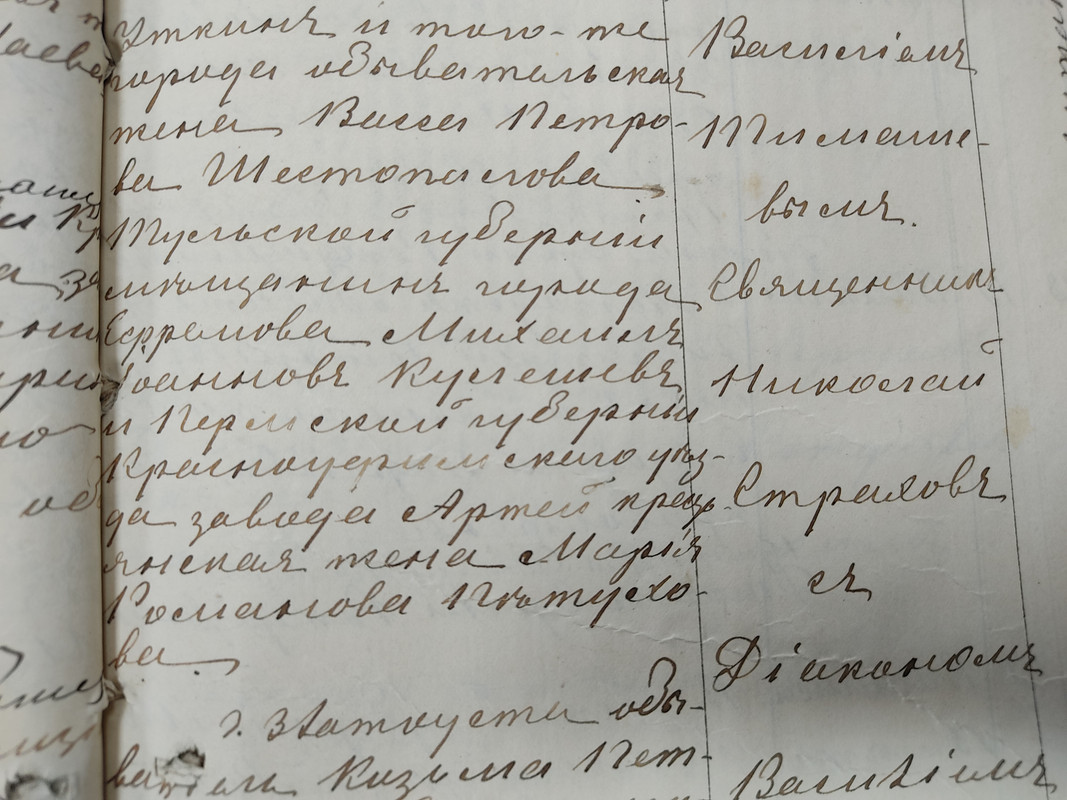 Уткинъ и того-же
города обывательская
жена Васса Петро-
ва Шестопалова
Тульской губерніи
мѣщанинъ города
Ефремова Михаилъ
Іоанновъ Кулешевъ
и Пермской губерніи
Красноуфимскаго уѣз-
да завода Артей кресть-
янская жена Марія
Романова Пѣтухо-
ва
г. Златоуста обы-
ватель Козьма Пет-
Василіемъ
Тимаше-
вымъ.
Священникъ
Николай
Страховъ
съ
Діакономъ
Василіемъ